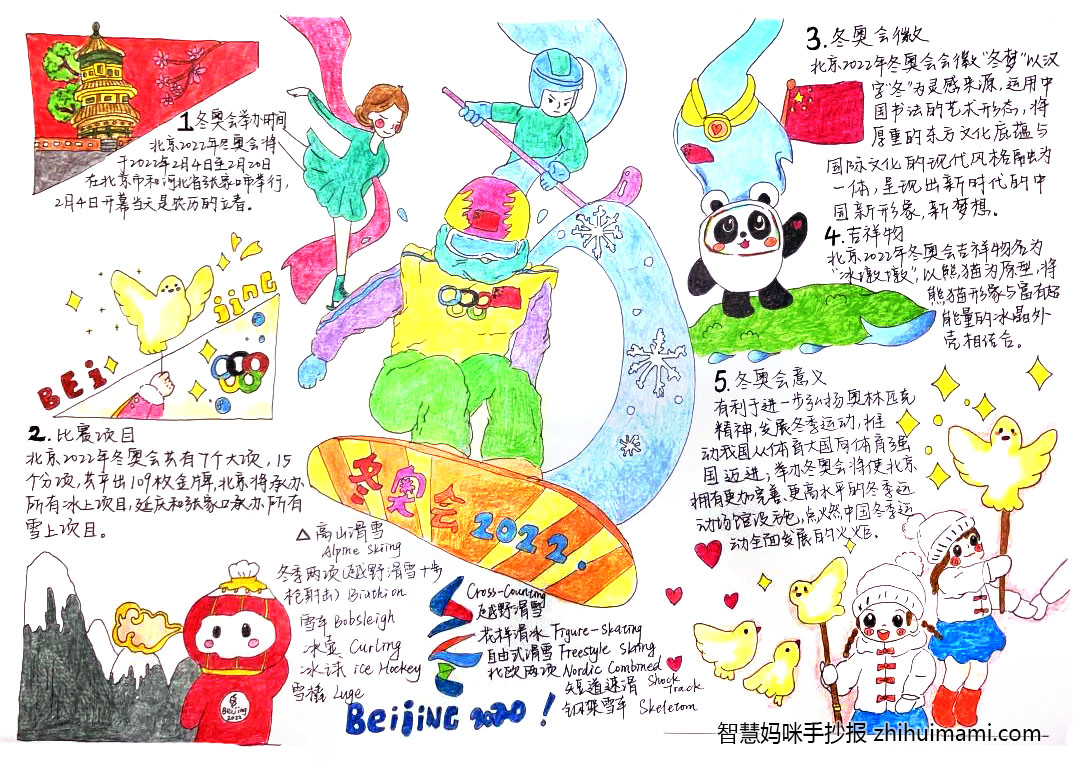 1冬奥会举办时间
北京2022年冬奥会将
于2022年2月4日至2月20日
在北京市和河北省张家口市举行,
2月4日开幕当天是农历的立春。
BEi
jiNG
2.比赛项目
北京2022年冬奥会共有7个大项,15
个分项,共产出109枚金牌,北京将承办
所有冰上项目,延庆和张家口承办所有
雪上项目。
冬奥会2022.
△高山滑雪
Alpine Skiing
冬季两项(越野滑雪+步
枪射击)Biathlon
雪车 Bobsleigh
冰壶 Curling
冰球 ice Hockey
雪橇 Luge
Beijing
2022
Cross-Country
越野滑雪
花样滑冰 Figure-skating
自由式滑雪 Freestyle Skiing
北欧两项 Nordic Combined
短道速滑 Shock
Track
钢架雪车 Skeletom
BeijiNG 2020!
3.冬奥会会徽
北京2022年冬奥会会徽“冬梦”以汉
字“冬”为灵感来源,运用中
国书法的艺术形态,将
厚重的东方文化底蕴与
国际文化的现代风格融为
一体,呈现出新时代的中
国新形象、新梦想。
4.吉祥物
北京2022年冬奥会吉祥物名为
“冰墩墩”,以熊猫为原型,将
熊猫形象与富有超
能量的冰晶外
壳相结合。
5.冬奥会意义
有利于进一步弘扬奥林匹克
精神,发展冬季运动,推
动我国从体育大国向体育强
国迈进;举办冬奥会将使北京
拥有更加完善、更高水平的冬季运
动场馆设施,点燃中国冬季运
动全面发展的火炬。
智慧妈咪手抄报 zhihuimami.com